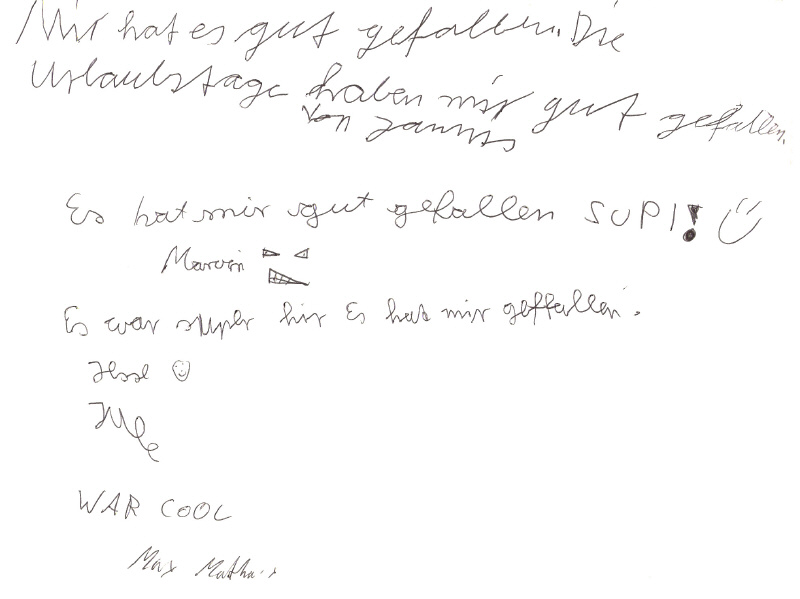 Mir hat es gut gefallen. Die
Urlaubstage haben mir gut gefallen.
Von Jannis
Es hat mir gut gefallen SUPI!
Marvin
Es war super hir Es hat mir geffallen.
WAR COOL
Max